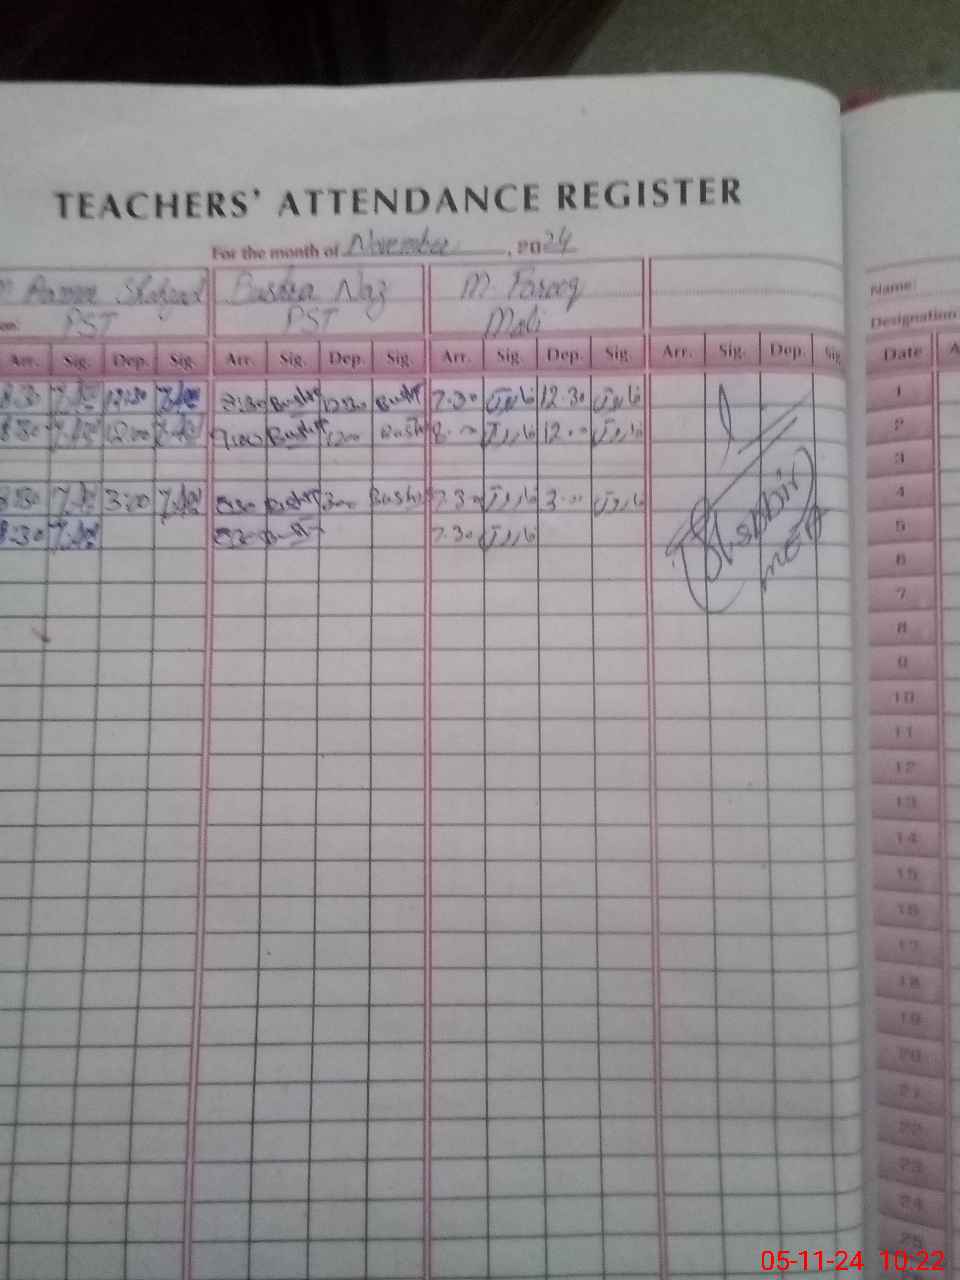 TEACHERS' ATTENDANCE REGISTER
For the month of November, 2024
Bushra Naz M. Farooq Name:
PST PST Mali Designation
Arr. Sig. Dep. Sig. Arr. Sig. Dep. Sig. Arr. Sig. Dep. Sig. Arr. Sig. Dep. Sig Date A
8:30 12:30 8:30 Bushra 12:30 Bushra 7.30 فاروق 12.30 فاروق 1
8:30 12:00 9:00 Bushra 12:00 Bush 8.00 فاروق 12.00 فاروق 2
3
8:30 3:00 8:30 Bushra 3:00 Bushra 7.30 فاروق 3.00 فاروق 4
8:30 8:30 7.30 فاروق 5
6
7
8
9
10
11
12
13
14
15
16
17
18
19
20
21
22
23
24
25
05-11-24 10:22